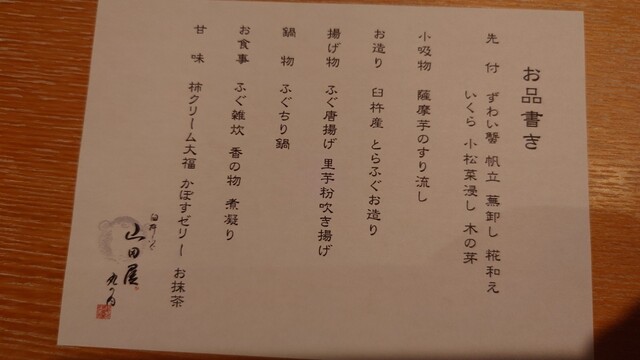 お品書き
先付 ずわい蟹 帆立 蕪卸し 糀和え
いくら 小松菜浸し 木の芽
小吸物 薩摩芋のすり流し
お造り 臼杵産 とらふぐお造り
揚げ物 ふぐ唐揚げ 里芋粉吹き揚げ
鍋物 ふぐちり鍋
お食事 ふぐ雑炊 香の物 煮凝り
甘味 柿クリーム大福 かぼすゼリー お抹茶
臼杵ふぐ
山田屋